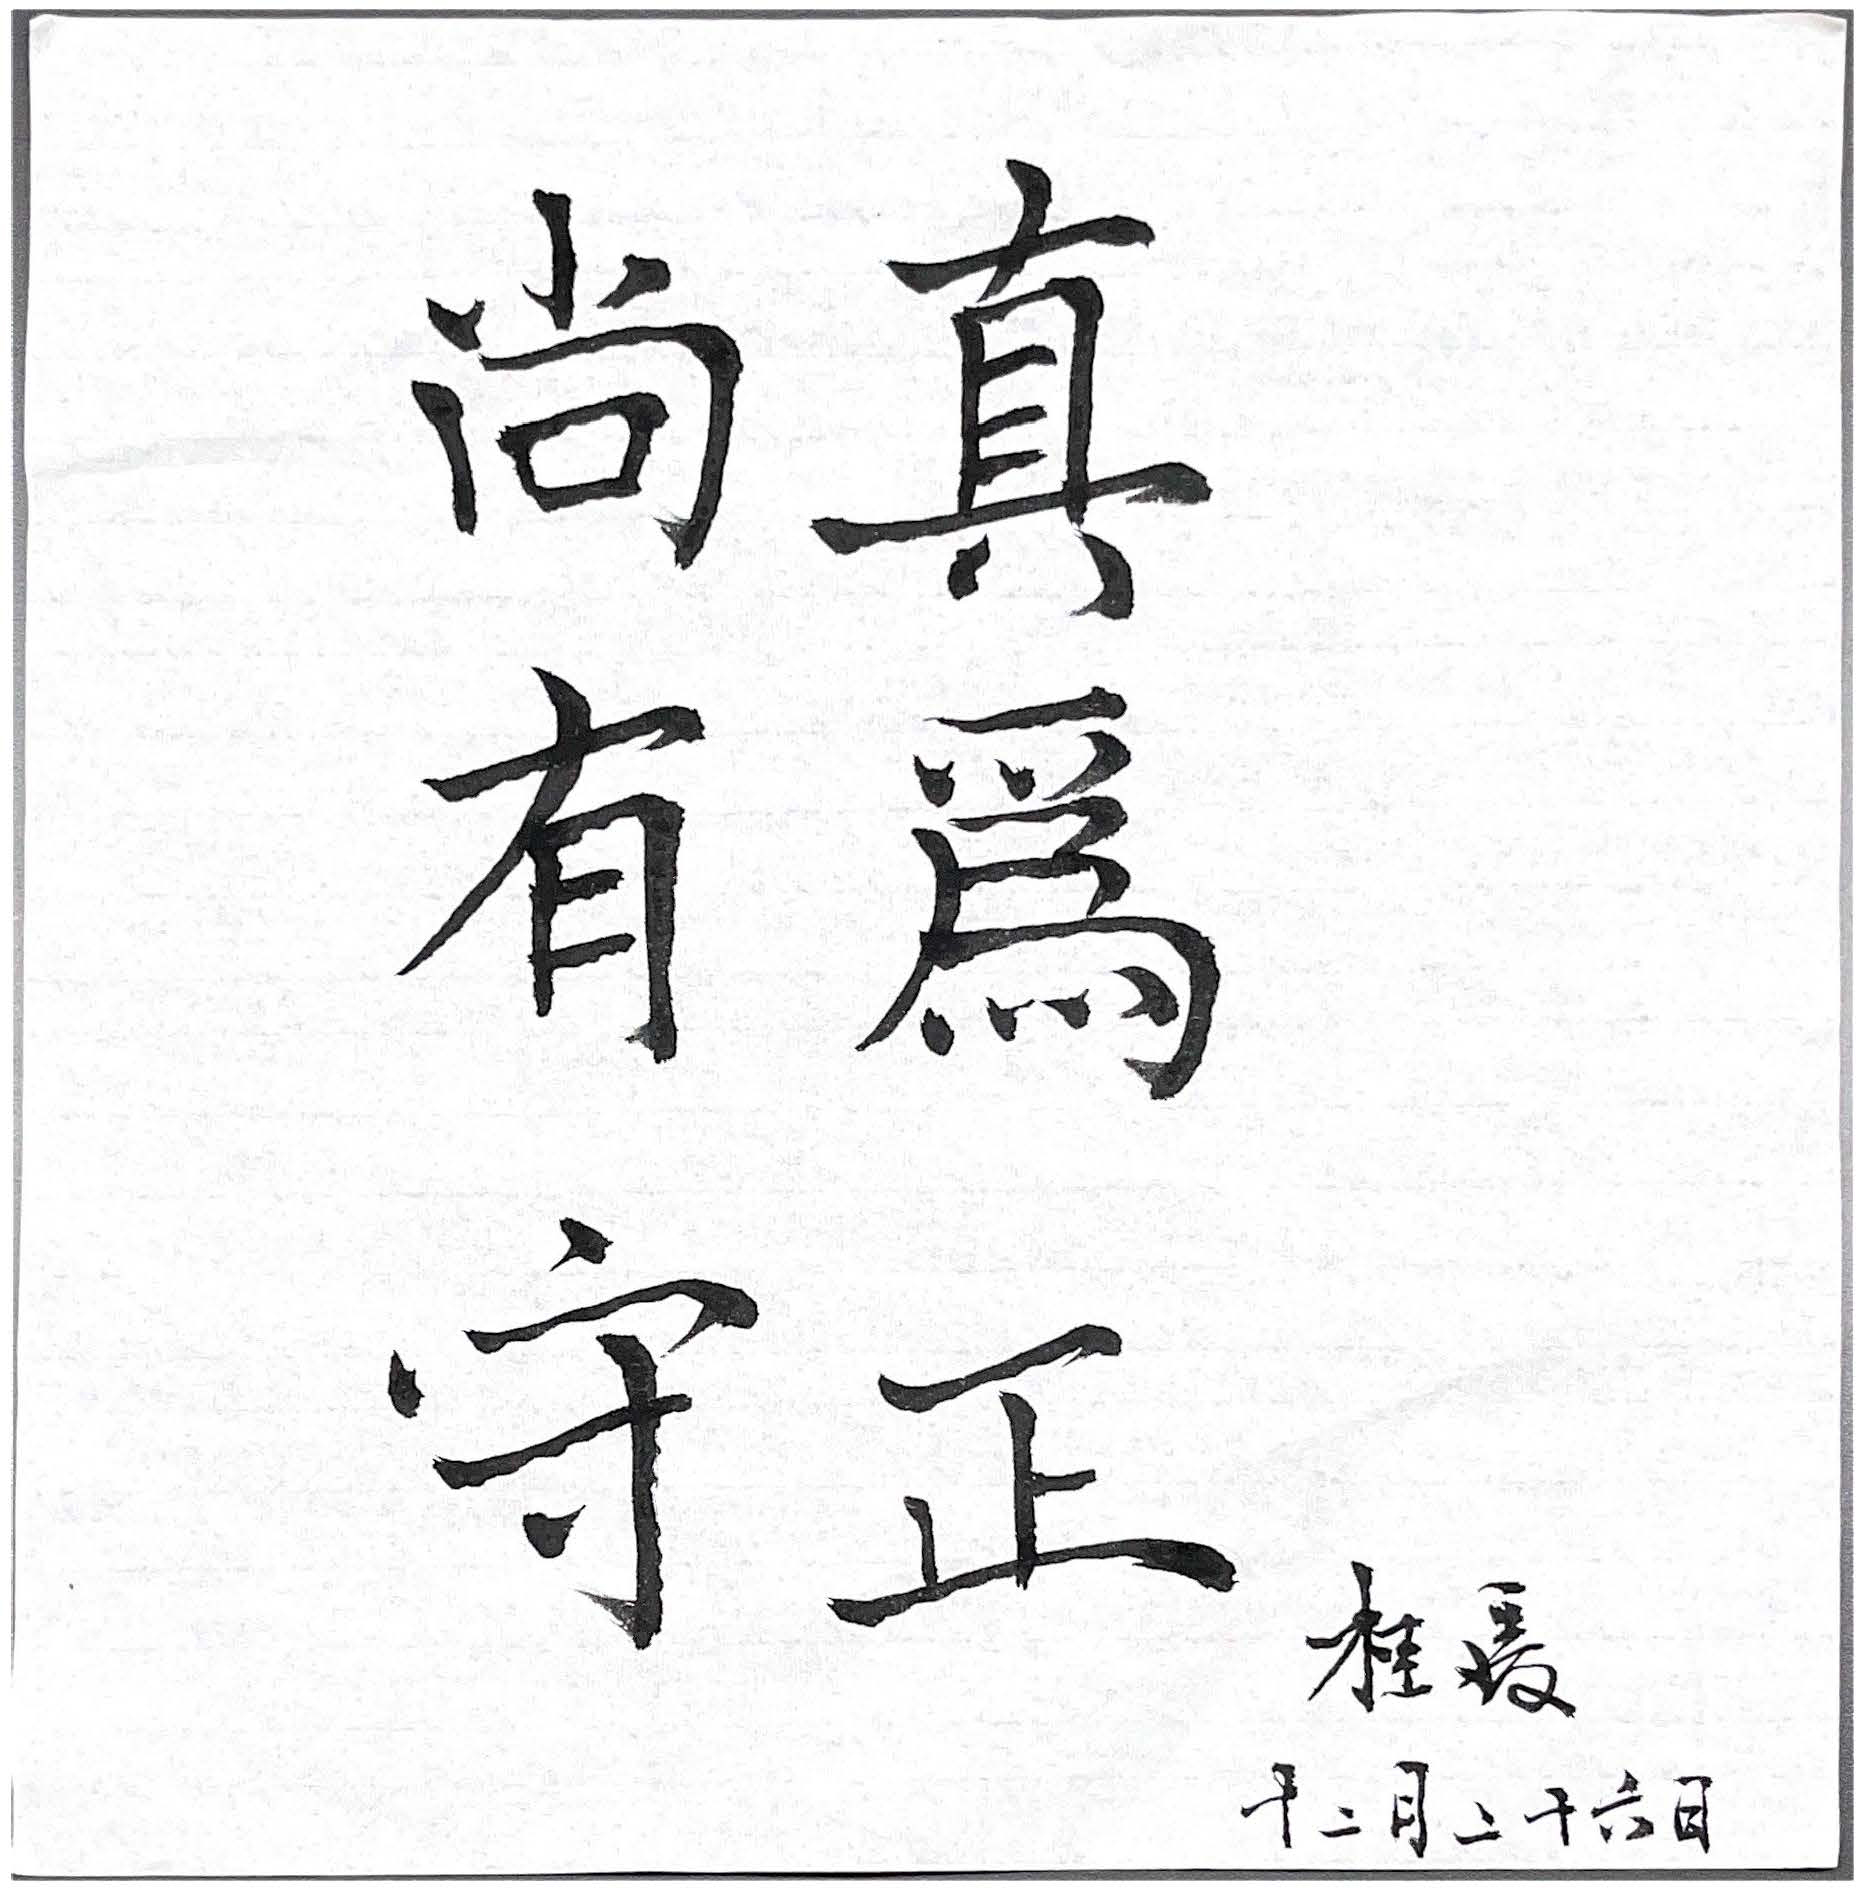 尚真
有爲
守正
桂
十二月二十六日